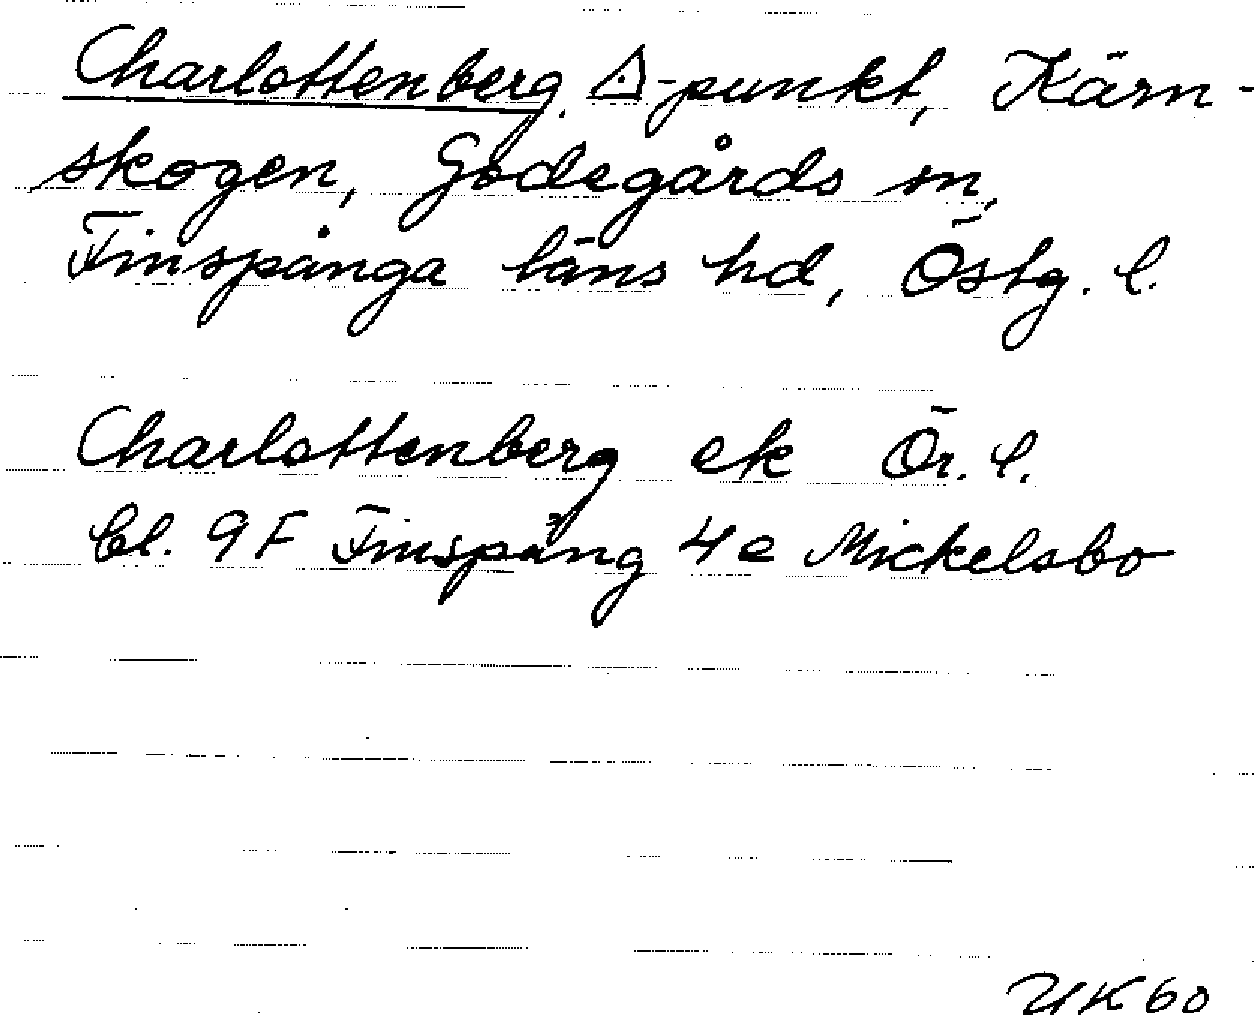 Charlottenberg, △-punkt, Kärn-
skogen, Godegårds sn,
Finspånga läns hd, Östg. l.
Charlottenberg ek Ör. l.
bl. 9F Finspång 4e Mickelsbo
UK60